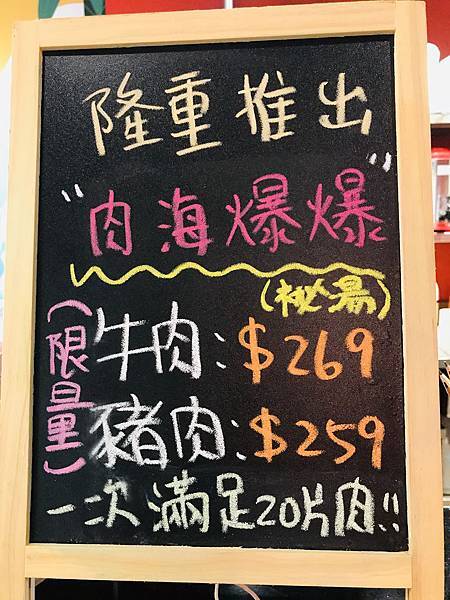 隆重推出
"肉海爆爆"
(祕湯)
(限量)
牛肉:$269
豬肉:$259
一次滿足20片肉!!